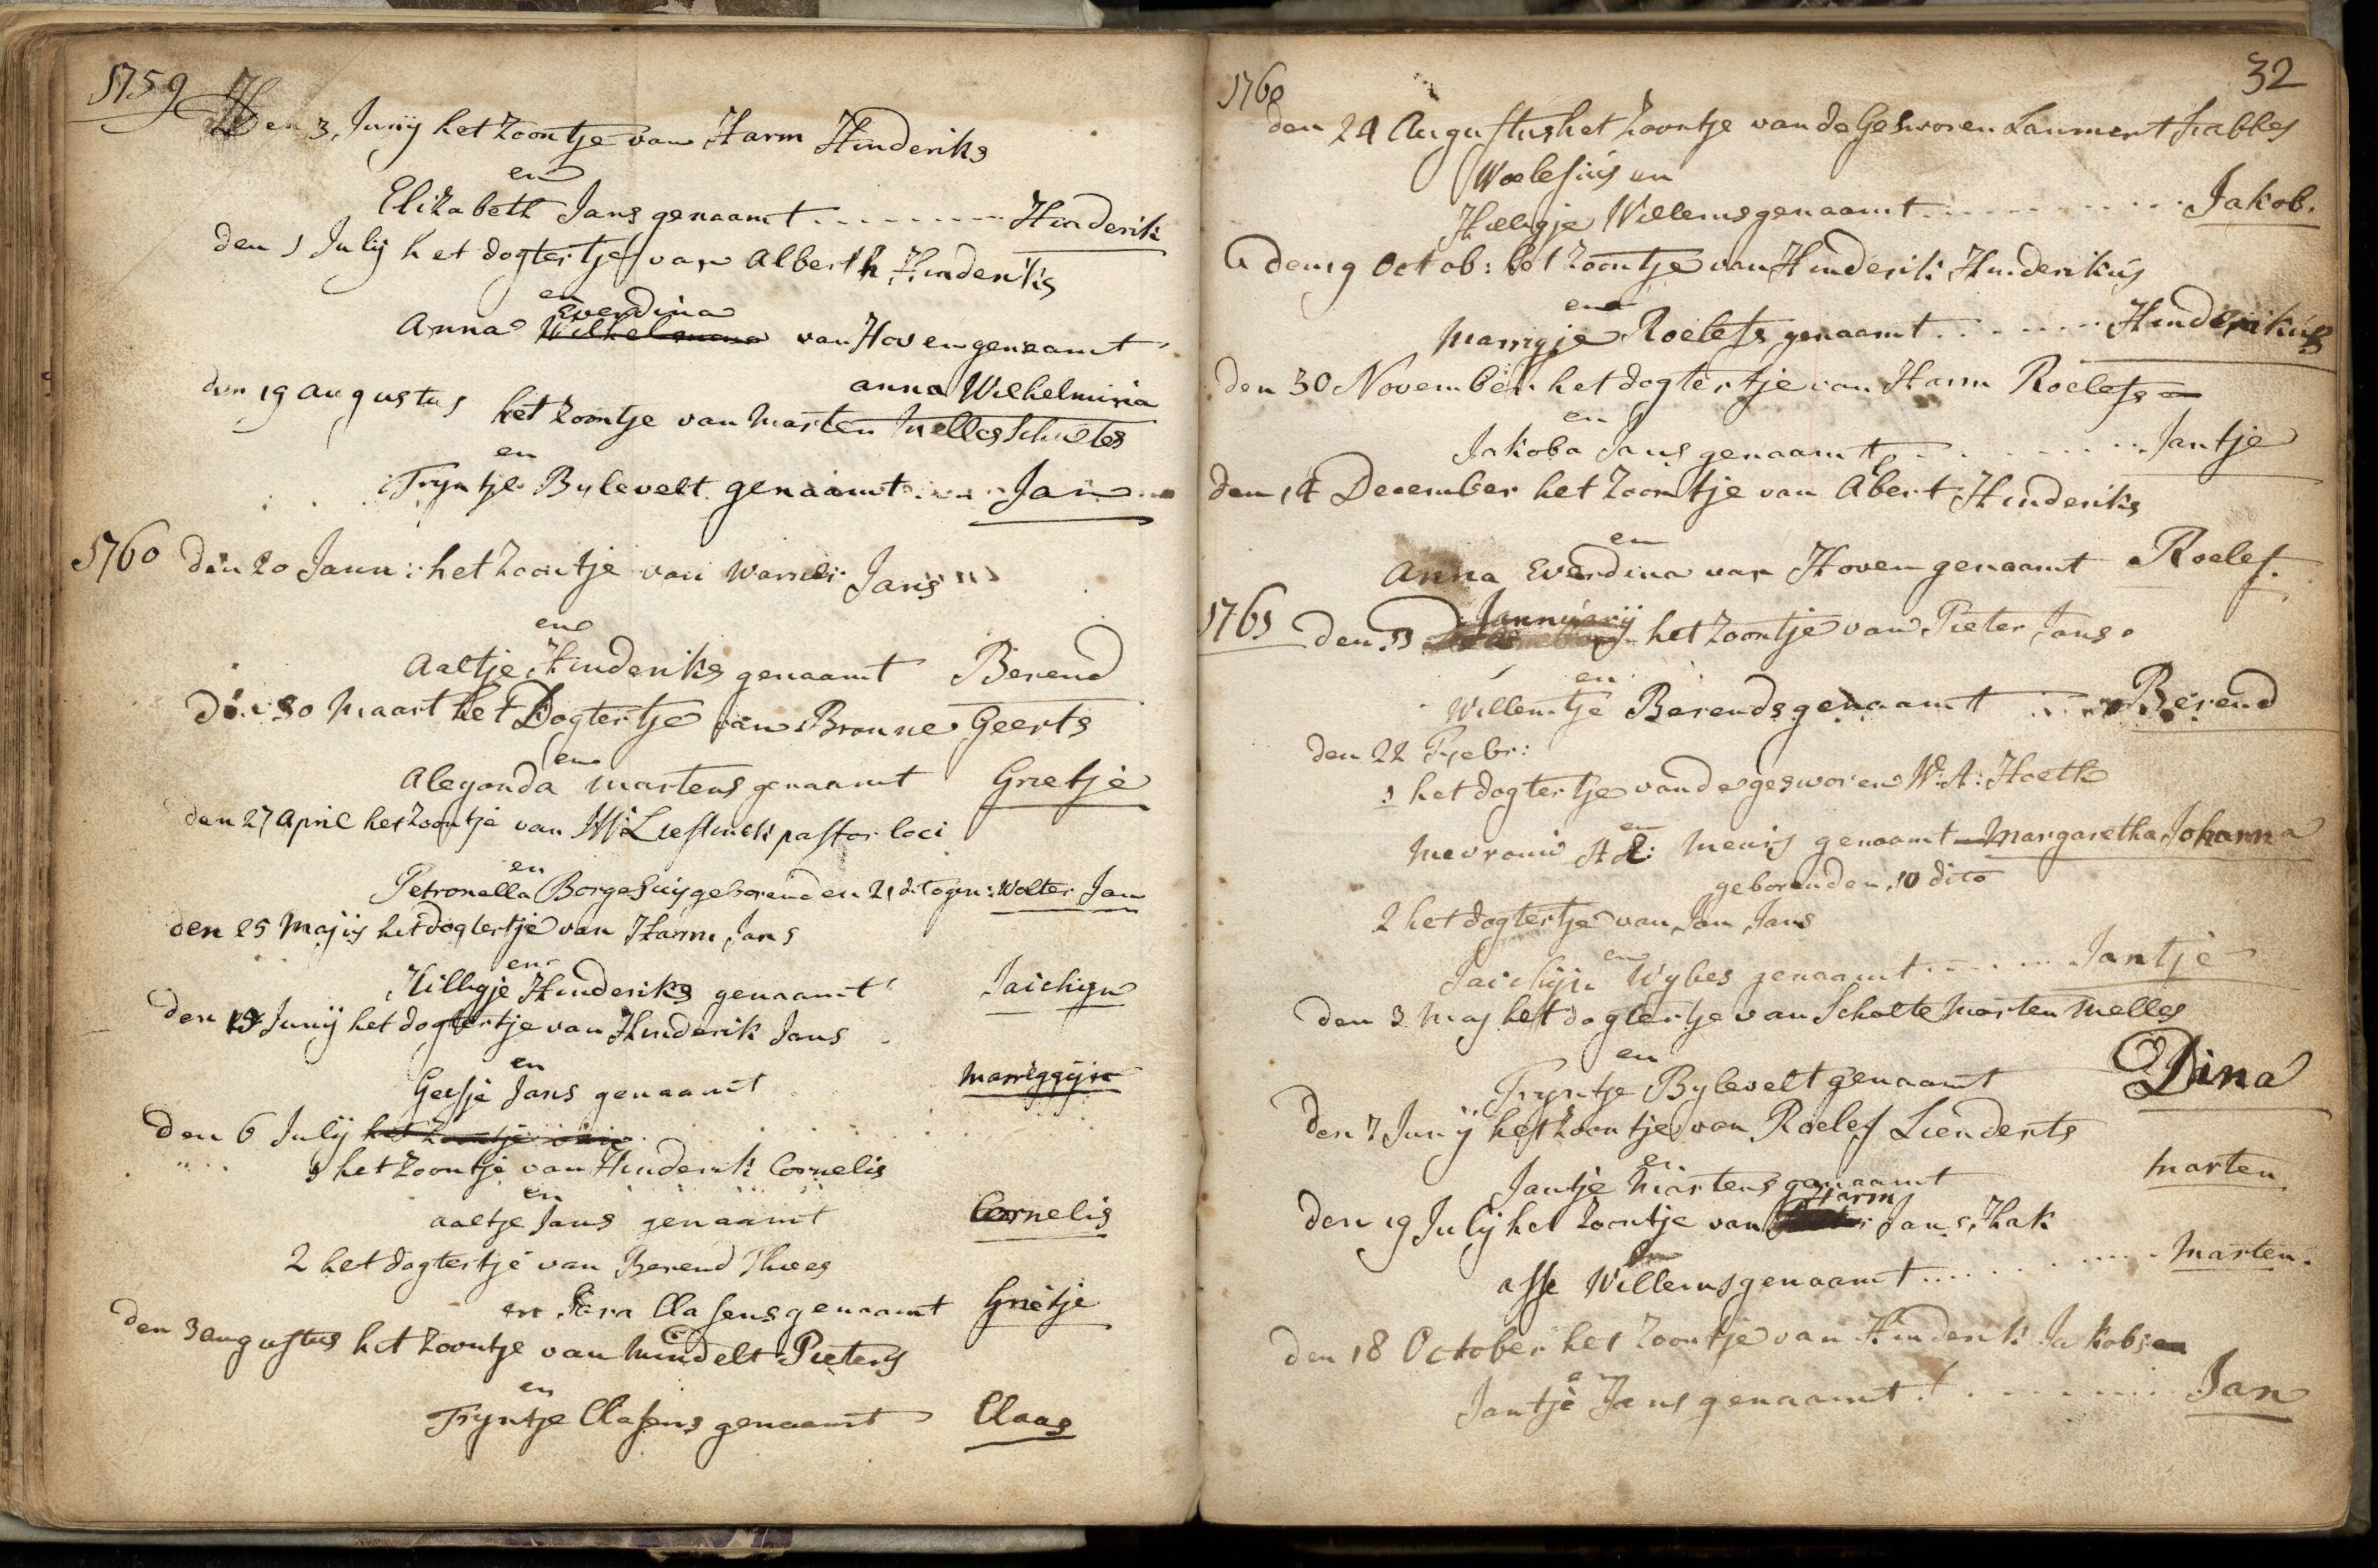 1759
Den 3, Junij het Zoontje van Harm Hinderiks
en
Elizabeth Jans genaamt - - - - - - - - Hinderik
den 1 Julij het dogtertje van Alberth Hinderiks
en
Everdina
Anna Wilhelmina van Hoven genaamt
anna Wilhelmina
den 19 augustus het Zoontje van Marten Melles Schultes
en
Tryntje Bylevelt genaamt Jan
1760 den 20 Jann: het Zoontje van Warner Jans
en
Aaltje Hinderiks genaamt Berend
den 30 Maart het Dogtertje van Bronne Geerts
en
Alegonda Martens genaamt Grietje
den 27 April het Zoontje van Liestinck pastor loci
en
Petronella Borgesuy geboren den 21 dito gen: Wolter Jan
den 25 Majy het dogtertje van Harm Jans
en
Hillegje Hinderiks genaamt Jaichijn
den Junij het dogtertje van Hinderik Jans
en
Geesje Jans genaamt Marriggijn
den 6 Julij het Zoontje van
1 het Zoontje van Hinderik Cornelis
en
aaltje Jans genaamt Cornelis
2 het dogtertje van Berend Thees
en Clasens genaamt Grietje
den 3 augustus het Zoontje van Mindelt Pieters
en
Tryntje Clasens genaamt Claas
32
1760
den 24 Augustus het Zoontje van de Gesworen Lammert
en
Hilligje Willems genaamt - - - - - - Jakob.
den 19 Octob: het Zoontje van Hinderik Hinderikus
en
Marrigje Roelefs genaamt - - - - Hinderikus
den 30 November het dogtertje van Harm Roelefs
en
Jakoba Jans genaamt - - - - - - Jantje
den 14 December het Zoontje van Albert Hinderiks
en
Anna Everdina van Hoven genaamt Roelef.
1761 Den 11 Jannuarij het Zoontje van Pieter Jans
en
Willemtje Berends genaamt - - - Berend
den 22 Febr:
1 het dogtertje vande gesworen W: A: Hoeth
en
Mevrouw Meurs genaamt Margaretha Johanna
geboren den 10 dito
2 het dogtertje van Jan Jans
en
Jaichijn Wybes genaamt - - - - Jantje
Den 3 Maj het dogtertje van Scholte Marten Melles
en
Tryntje Bylevelt genaamt Dina
den 7 Junij het Zoontje van Roelef Lienderts
en
Jantje Martens genaamt Marten
Harm
den 19 Julij het Zoontje van Jans Hak
en
Willems genaamt - - - - - - Marten.
den 18 October het Zoontje van Hinderik Jakobs en
en
Jantje Jans genaamt - - - - - - Jan